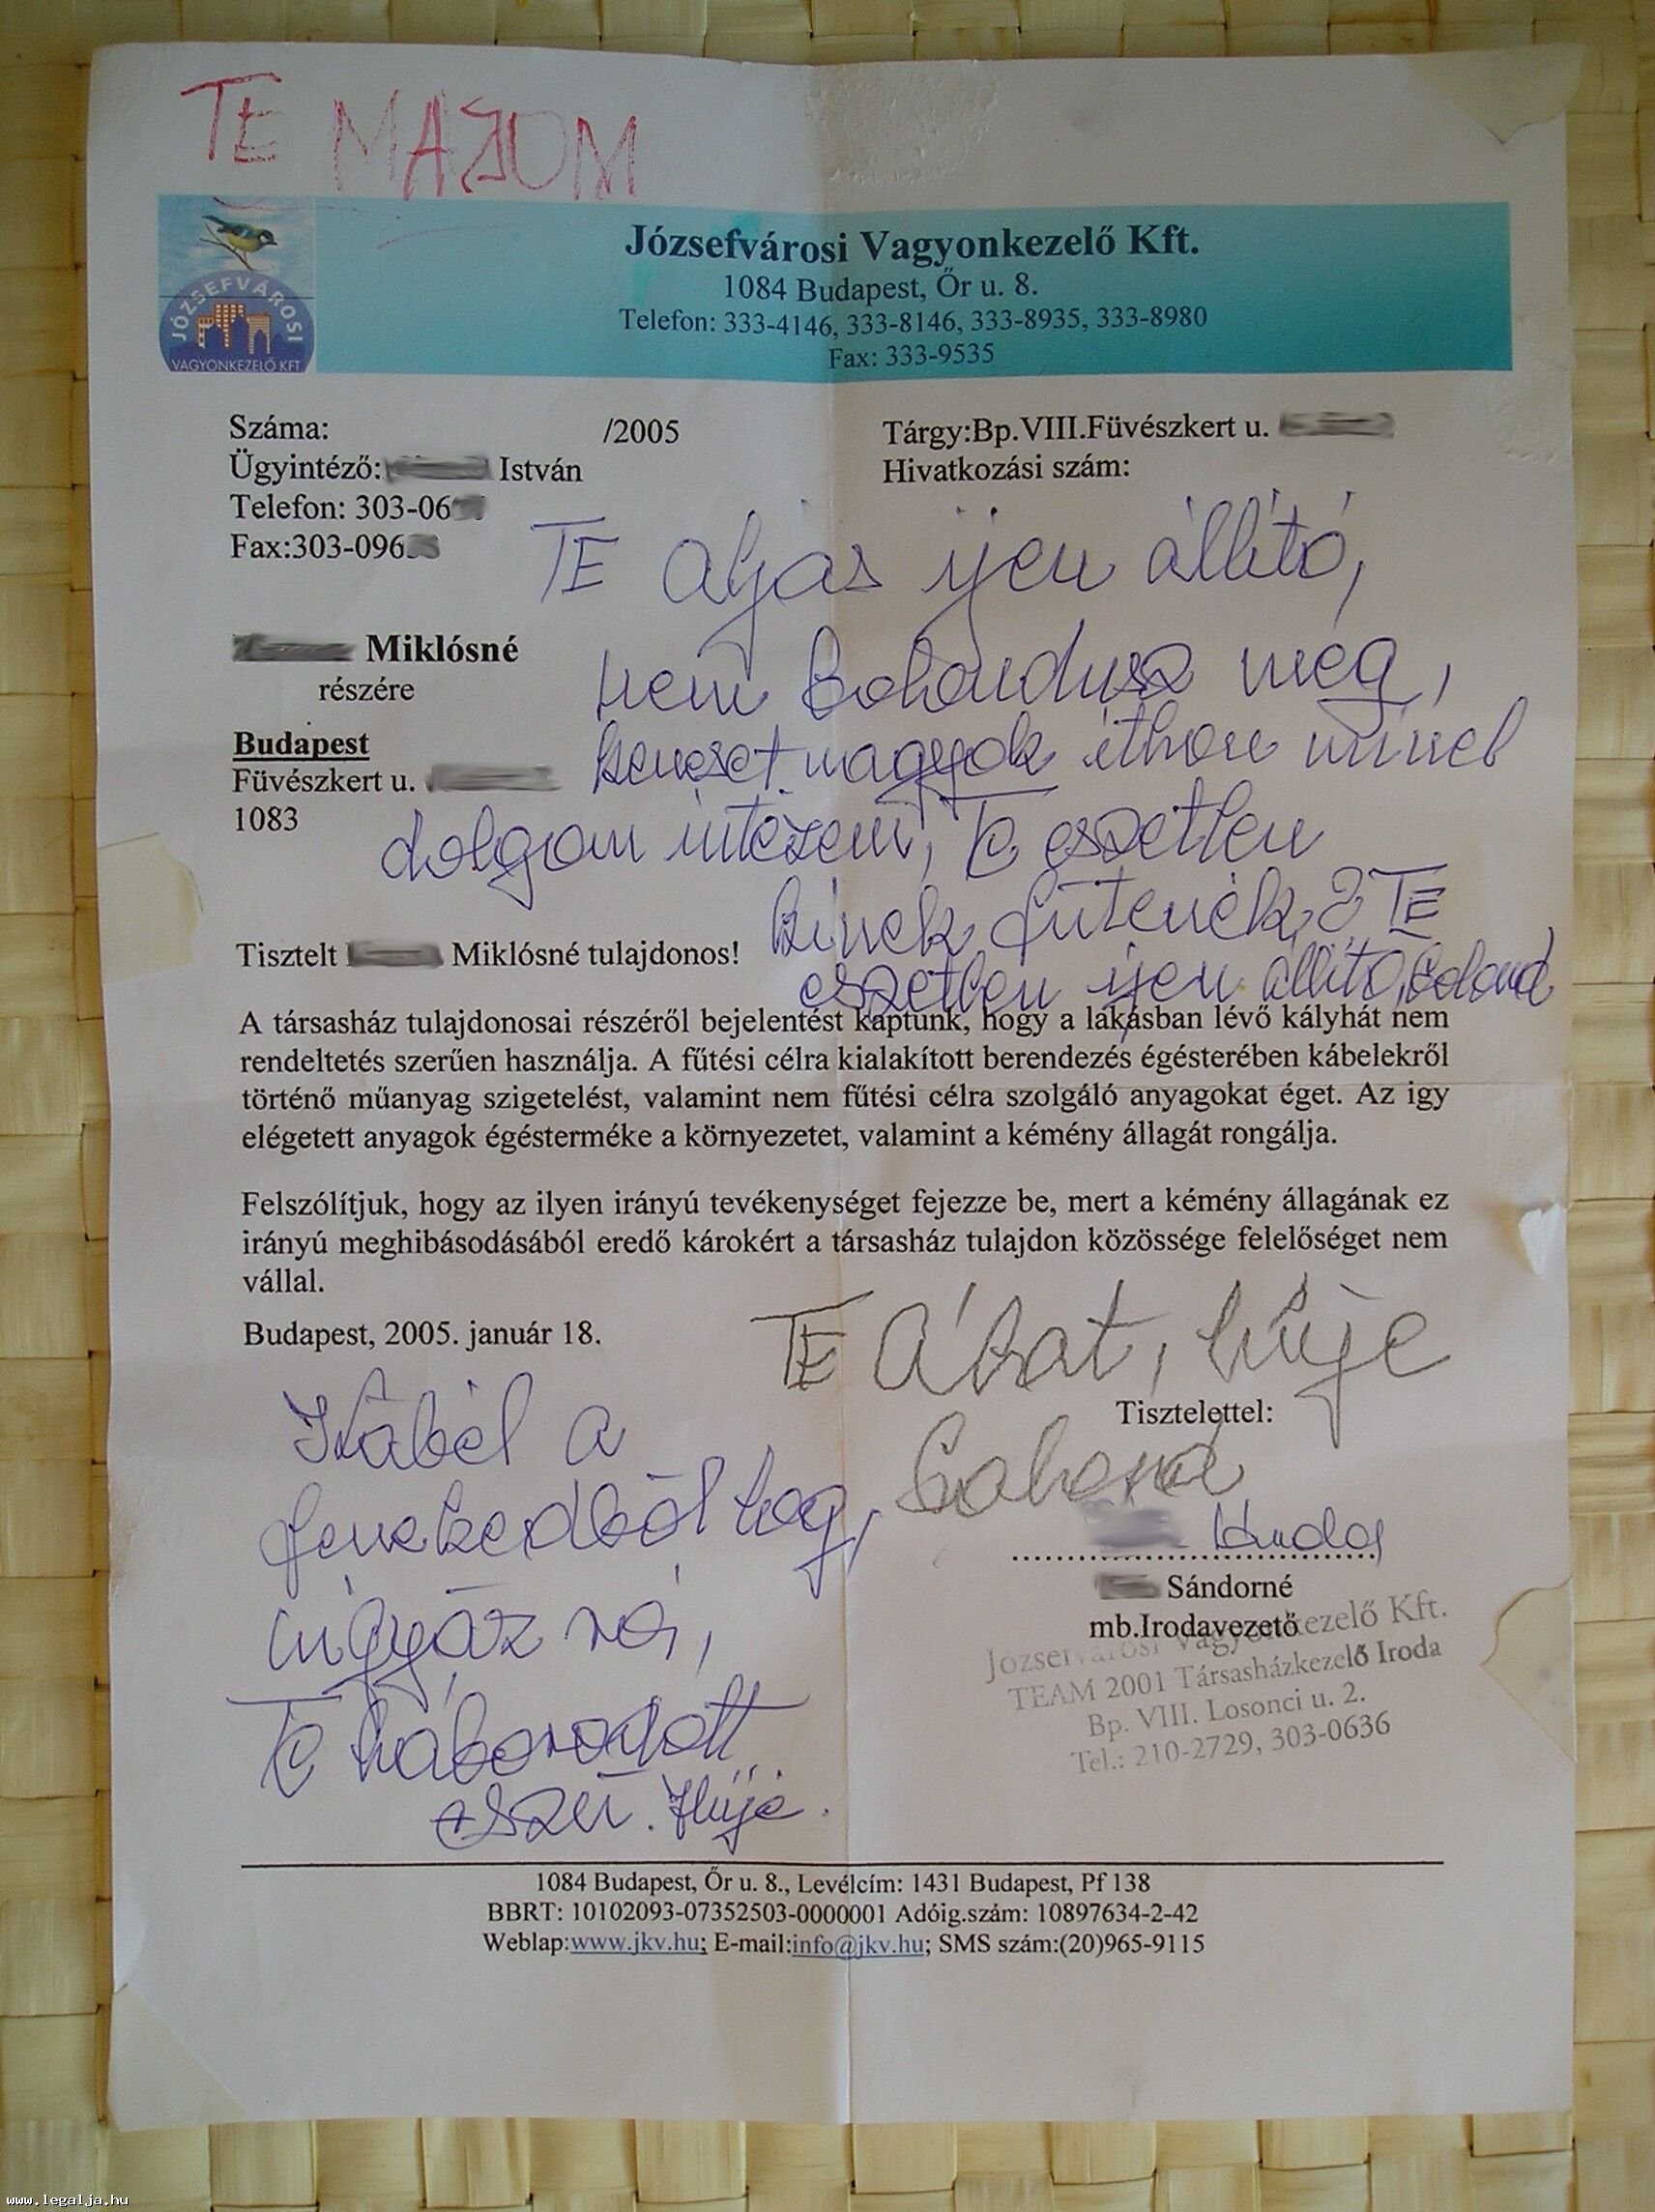 TE MAJOM
Józsefvárosi Vagyonkezelő Kft.
1084 Budapest, Őr u. 8.
Telefon: 333-4146, 333-8146, 333-8935, 333-8980
Fax: 333-9535
JÓZSEFVÁROSI
VAGYONKEZELŐ KFT
Száma: /2005
Tárgy:Bp.VIII.Füvészkert u.
Ügyintéző: István
Hivatkozási szám:
Telefon: 303-06
Fax:303-096
TE aljas ijen állító,
Miklósné
részére
nem Bolondusz meg,
keveset vagyok ithon
Budapest
Füvészkert u.
1083
dolgom intézem, Te eszetlen
kinek fűtenék? TE
eszetlen ijen állító, Bolond
Tisztelt Miklósné tulajdonos!
A társasház tulajdonosai részéről bejelentést kaptunk, hogy a lakásban lévő kályhát nem
rendeltetés szerűen használja. A fűtési célra kialakított berendezés égésterében kábelekről
történő műanyag szigetelést, valamint nem fűtési célra szolgáló anyagokat éget. Az igy
elégetett anyagok égésterméke a környezetet, valamint a kémény állagát rongálja.
Felszólítjuk, hogy az ilyen irányú tevékenységet fejezze be, mert a kémény állagának ez
irányú meghibásodásából eredő károkért a társasház tulajdon közössége felelőséget nem
vállal.
Budapest, 2005. január 18.
TE Álat, hüje
Tisztelettel:
Bolond
Kábél a
fenekedből log,
vigyáz rá,
Te háborodott
eszü. Hüje.
Sándorné
mb.Irodavezető
Józsefvárosi Vagyonkezelő Kft.
TEAM 2001 Társasházkezelő Iroda
Bp. VIII. Losonci u. 2.
Tel.: 210-2729, 303-0636
1084 Budapest, Őr u. 8., Levélcím: 1431 Budapest, Pf 138
BBRT: 10102093-07352503-0000001 Adóig.szám: 10897634-2-42
Weblap:www.jkv.hu; E-mail:info@jkv.hu; SMS szám:(20)965-9115
www.legalja.hu